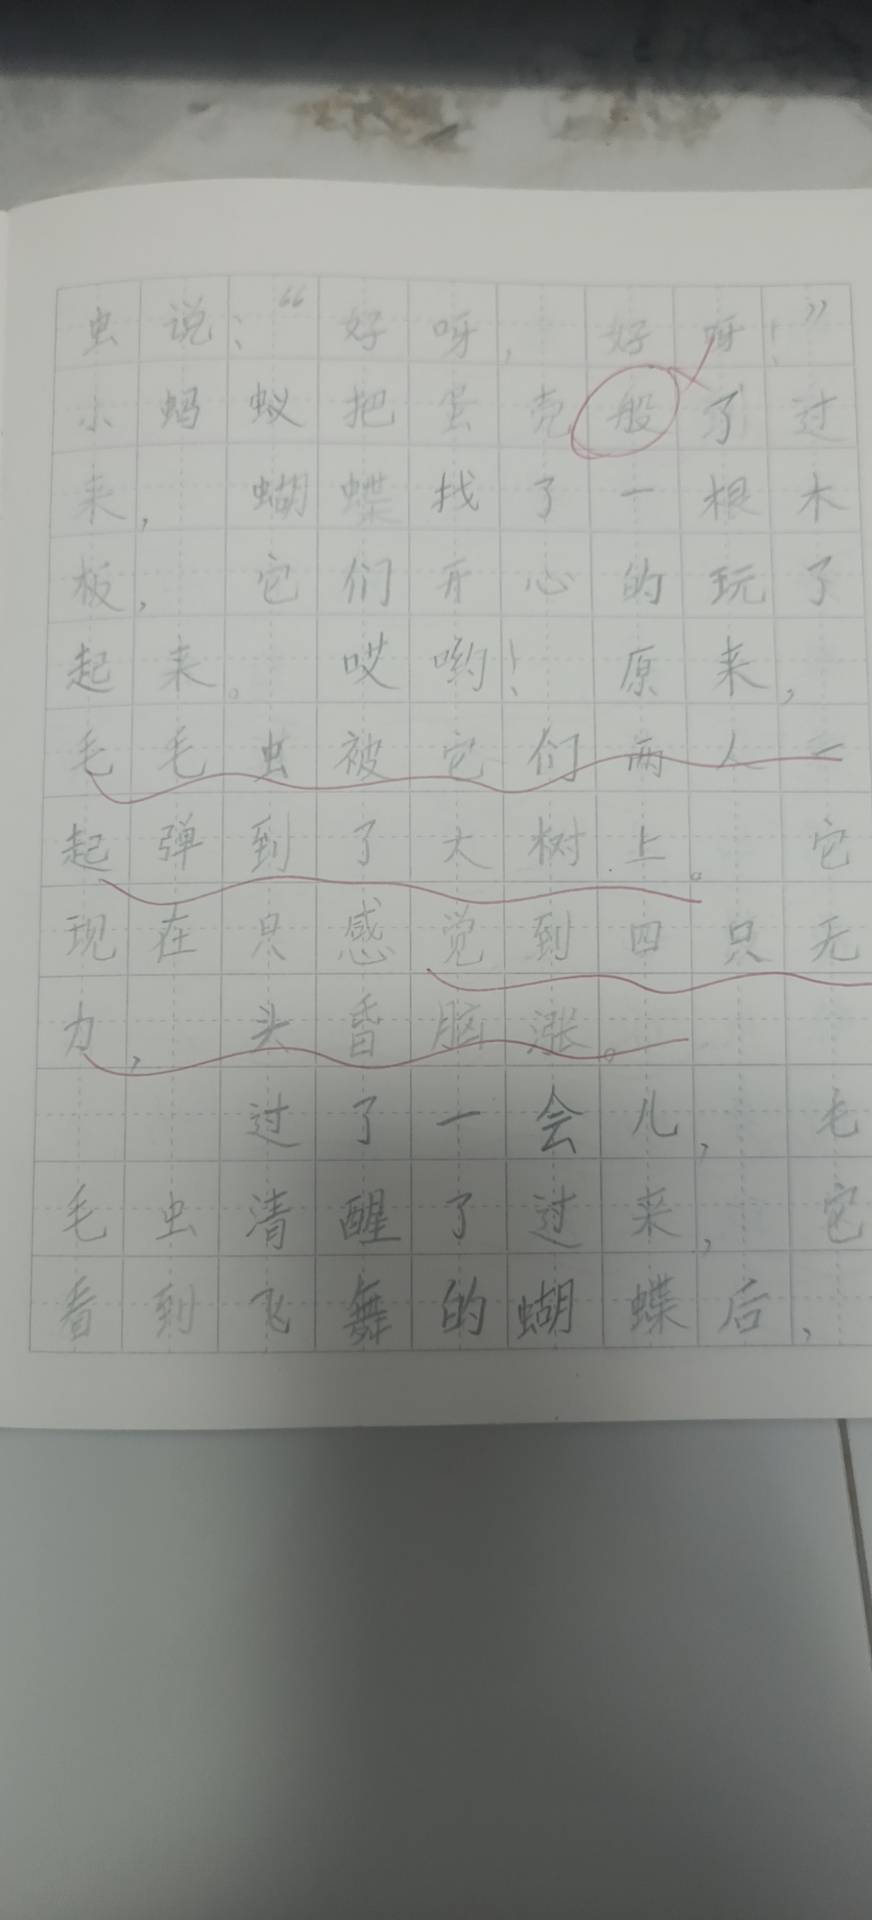 虫说：“好呀，好呀！”
小蚂蚁把蛋壳般了过
来，蝴蝶找了一根木
板，它们开心的玩了
起来。哎哟！原来，
毛毛虫被它们两人一
起弹到了大树上。它
现在只感觉到四只无
力，头昏脑涨。
过了一会儿，毛
毛虫清醒了过来，它
看到飞舞的蝴蝶后，